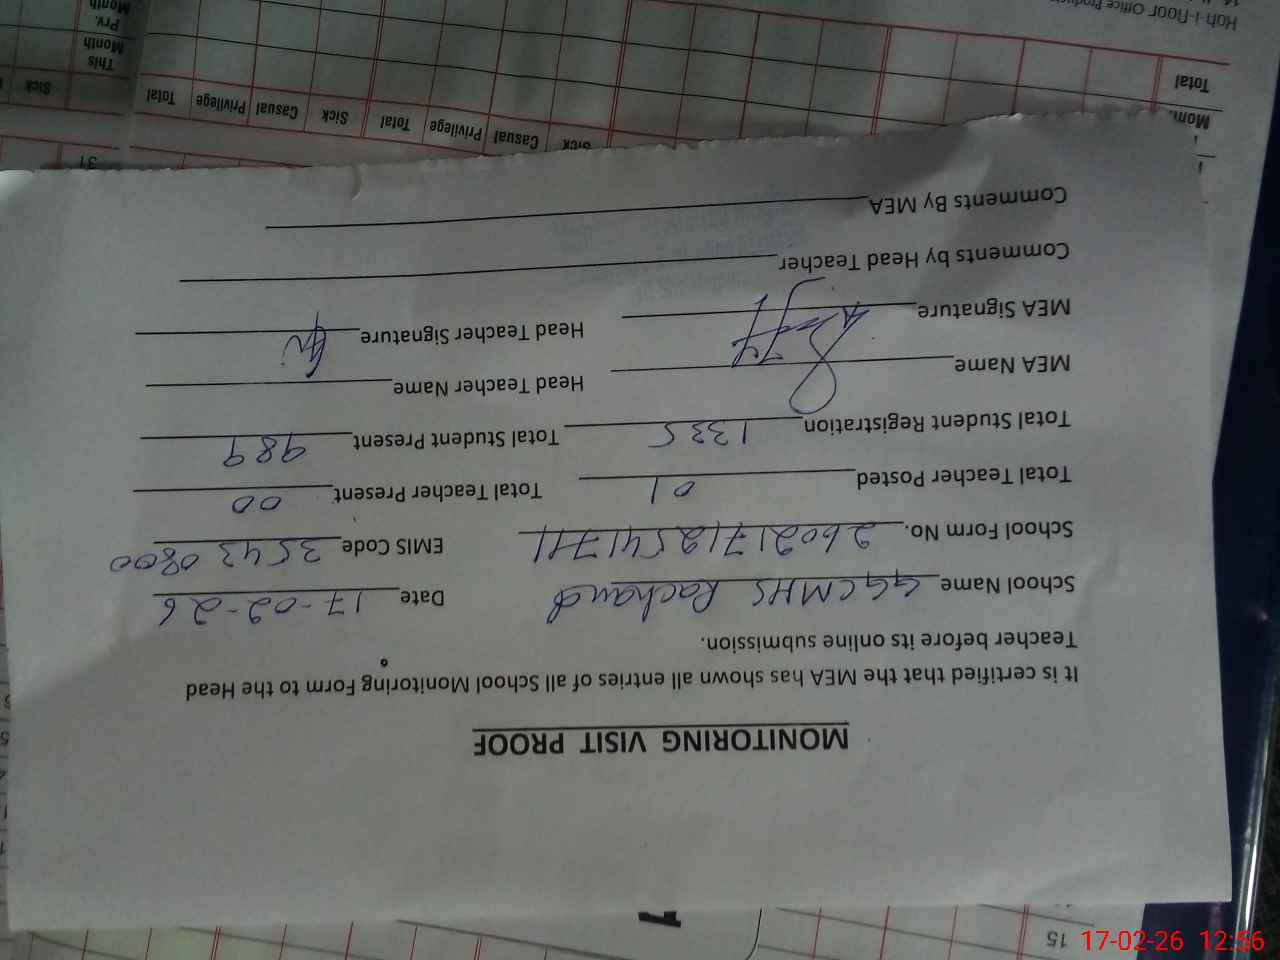 MONITORING VISIT PROOF
It is certified that the MEA has shown all entries of all School Monitoring Form to the Head
Teacher before its online submission.
School Name GGCMHS Rachand Date 17-02-26
School Form No. EMIS Code 35430800
Total Teacher Posted 01 Total Teacher Present 00
Total Student Registration 1335 Total Student Present 989
MEA Name Head Teacher Name
MEA Signature Head Teacher Signature
Comments by Head Teacher
Comments By MEA
31
Sick Casual Privilege Total Sick Casual Privilege Total
Sick
This
Month
Prv.
Month
Total
15
17-02-26 12:56